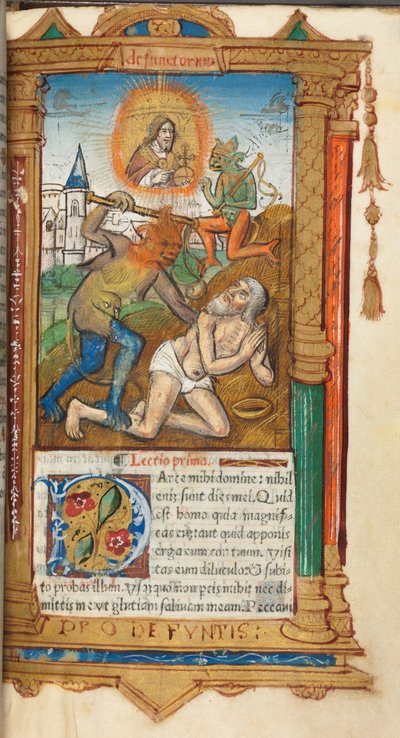 defunctorum
Lectio prima.
PArce mihi domine: nihil
eni3 sunt dies mei. Quid
est homo quia magnifi-
cas eu3: aut quid apponis
erga eum cor tuum. Uisi
tas eum diluculo: & subi-
to probas illum. Usquequo non pcis mihi: nec di-
mittis me vt glutiam saliuam meam. Peccaui
PRO DEFVNTIS: